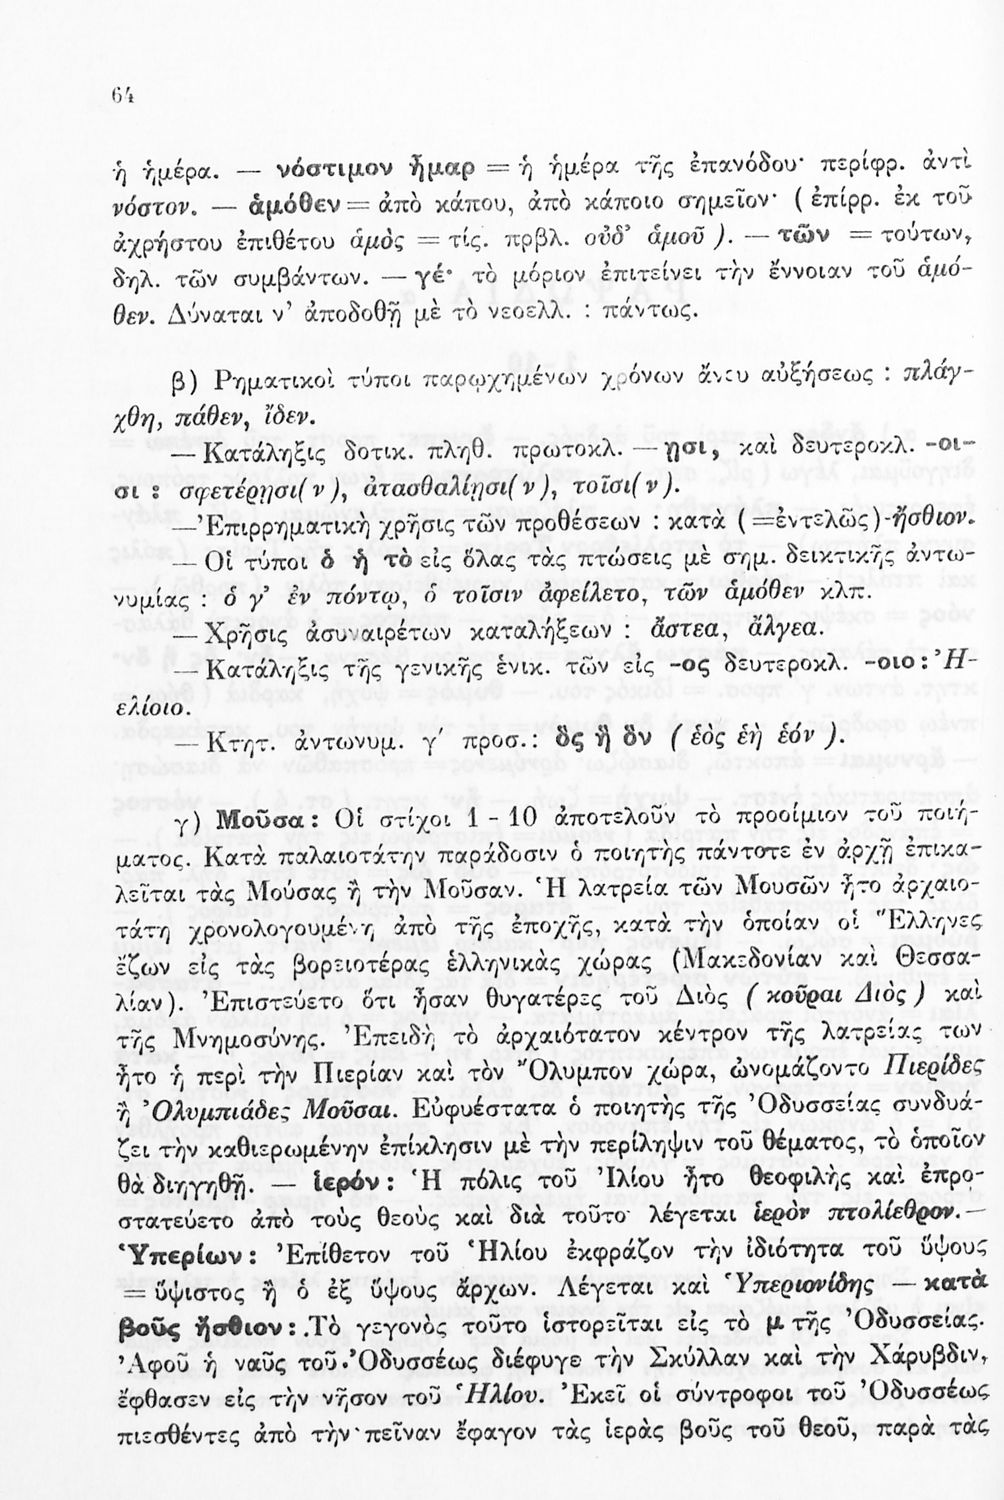 64
ἡ ἡμέρα. — νόστιμον ἦμαρ = ἡ ἡμέρα τῆς ἐπανόδου· περίφρ. ἀντὶ
νόστον. — ἁμόθεν = ἀπὸ κάπου, ἀπὸ κάποιο σημεῖον· ( ἐπίρρ. ἐκ τοῦ
ἀχρήστου ἐπιθέτου ἁμὸς = τίς. πρβλ. οὐδ᾽ ἁμοῦ ). — τῶν = τούτων,
δηλ. τῶν συμβάντων. — γέ· τὸ μόριον ἐπιτείνει τὴν ἔννοιαν τοῦ ἁμό-
θεν. Δύναται ν᾽ ἀποδοθῇ μὲ τὸ νεοελλ. : πάντως.
β) Ρηματικοὶ τύποι παρῳχημένων χρόνων ἄνευ αὐξήσεως : πλάγ-
χθη, πάθεν, ἴδεν.
— Κατάληξις δοτικ. πληθ. πρωτοκλ. — ῃσι, καὶ δευτεροκλ. -οι-
σι : σφετέρῃσι( ν ), ἀτασθαλίῃσι( ν ), τοῖσι( ν ).
—᾽Επιρρηματικὴ χρῆσις τῶν προθέσεων : κατὰ ( =ἐντελῶς )-ἤσθιον.
— Οἱ τύποι ὁ ἡ τὸ εἰς ὅλας τὰς πτώσεις μὲ σημ. δεικτικῆς ἀντω-
νυμίας : ὅ γ᾽ ἐν πόντῳ, ὁ τοῖσιν ἀφείλετο, τῶν ἁμόθεν κλπ.
— Χρῆσις ἀσυναιρέτων καταλήξεων : ἄστεα, ἄλγεα.
— Κατάληξις τῆς γενικῆς ἑνικ. τῶν εἰς -ος δευτεροκλ. -οιο : ᾽Η-
ελίοιο.
— Κτητ. ἀντωνυμ. γ΄ προσ.: ὃς ἣ ὃν ( ἑὸς ἑὴ ἑόν ).
γ) Μοῦσα : Οἱ στίχοι 1 - 10 ἀποτελοῦν τὸ προοίμιον τοῦ ποιή-
ματος. Κατὰ παλαιοτάτην παράδοσιν ὁ ποιητὴς πάντοτε ἐν ἀρχῇ ἐπικα-
λεῖται τὰς Μούσας ἢ τὴν Μοῦσαν. Ἡ λατρεία τῶν Μουσῶν ἦτο ἀρχαιο-
τάτη χρονολογουμένη ἀπὸ τῆς ἐποχῆς, κατὰ τὴν ὁποίαν οἱ Ἕλληνες
ἔζων εἰς τὰς βορειοτέρας ἑλληνικὰς χώρας (Μακεδονίαν καὶ Θεσσα-
λίαν). ᾽Επιστεύετο ὅτι ἦσαν θυγατέρες τοῦ Διὸς ( κοῦραι Διὸς ) καὶ
τῆς Μνημοσύνης. ᾽Επειδὴ τὸ ἀρχαιότατον κέντρον τῆς λατρείας των
ἦτο ἡ περὶ τὴν Πιερίαν καὶ τὸν ῎Ολυμπον χώρα, ὠνομάζοντο Πιερίδες
ἢ ᾽Ολυμπιάδες Μοῦσαι. Εὐφυέστατα ὁ ποιητὴς τῆς ᾽Οδυσσείας συνδυά-
ζει τὴν καθιερωμένην ἐπίκλησιν μὲ τὴν περίληψιν τοῦ θέματος, τὸ ὁποῖον
θὰ διηγηθῇ. — ἱερόν : Ἡ πόλις τοῦ ᾽Ιλίου ἦτο θεοφιλὴς καὶ ἐπρο-
στατεύετο ἀπὸ τοὺς θεοὺς καὶ διὰ τοῦτο λέγεται ἱερὸν πτολίεθρον.—
Ὑπερίων : ᾽Επίθετον τοῦ Ἡλίου ἐκφράζον τὴν ἰδιότητα τοῦ ὕψους
= ὕψιστος ἢ ὁ ἐξ ὕψους ἄρχων. Λέγεται καὶ Ὑπεριονίδης — κατὰ
βοῦς ἤσθιον : Τὸ γεγονὸς τοῦτο ἱστορεῖται εἰς τὸ μ τῆς ᾽Οδυσσείας.
᾽Αφοῦ ἡ ναῦς τοῦ ᾽Οδυσσέως διέφυγε τὴν Σκύλλαν καὶ τὴν Χάρυβδιν,
ἔφθασεν εἰς τὴν νῆσον τοῦ Ἡλίου. ᾽Εκεῖ οἱ σύντροφοι τοῦ ᾽Οδυσσέως
πιεσθέντες ἀπὸ τὴν πεῖναν ἔφαγον τὰς ἱερὰς βοῦς τοῦ θεοῦ, παρὰ τὰς